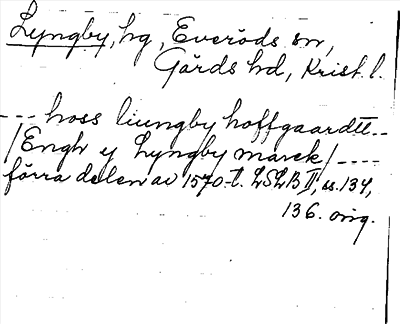 Lyngby, hg, Everöds sn,
Gärds hd, Krist. l.
--- hoss liungby hoffgaardtt---
/Engh y Lyngby marck/----
förra delen av 1570-t. LSLB II, ss. 134,
136. orig.